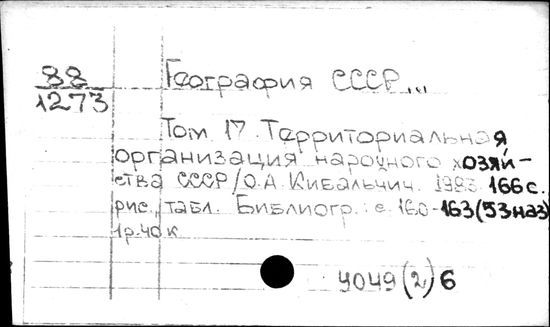 88
1273
География СССР...
Том 17. Территориальная
организация народного хозяй-
ства СССР/О.А. Кибальчич. 1983 166 с.
рис., табл. Библиогр.: с. 160-163 (53 назв)
1р.40к
4049(2)6